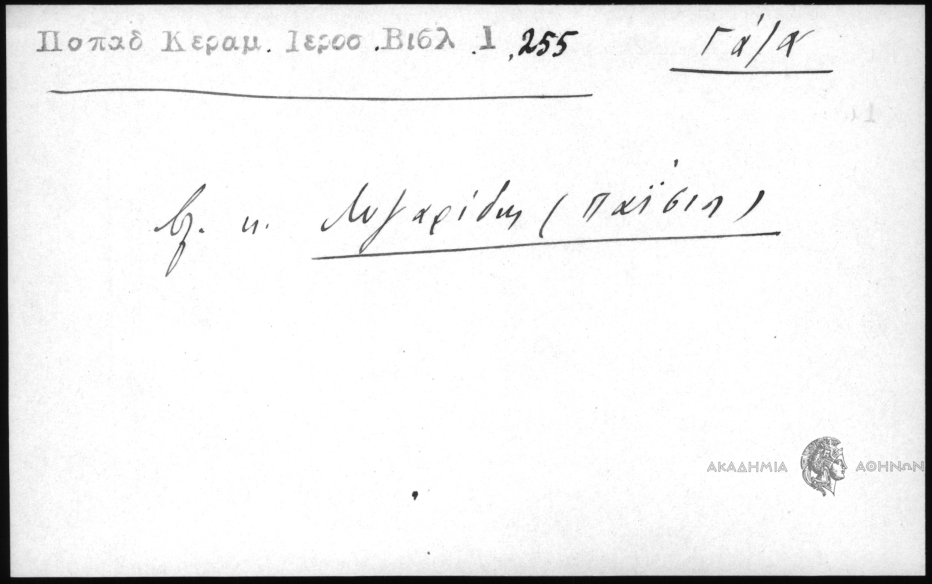 Ποπαδ Κεραμ. Ιεροσ.Βιβλ .1 ,255
Γάζα
βλ. κ. Λιγαρίδης (Παΐσιος)
ΑΚΑΔΗΜΙΑ ΑΘΗΝΩΝ